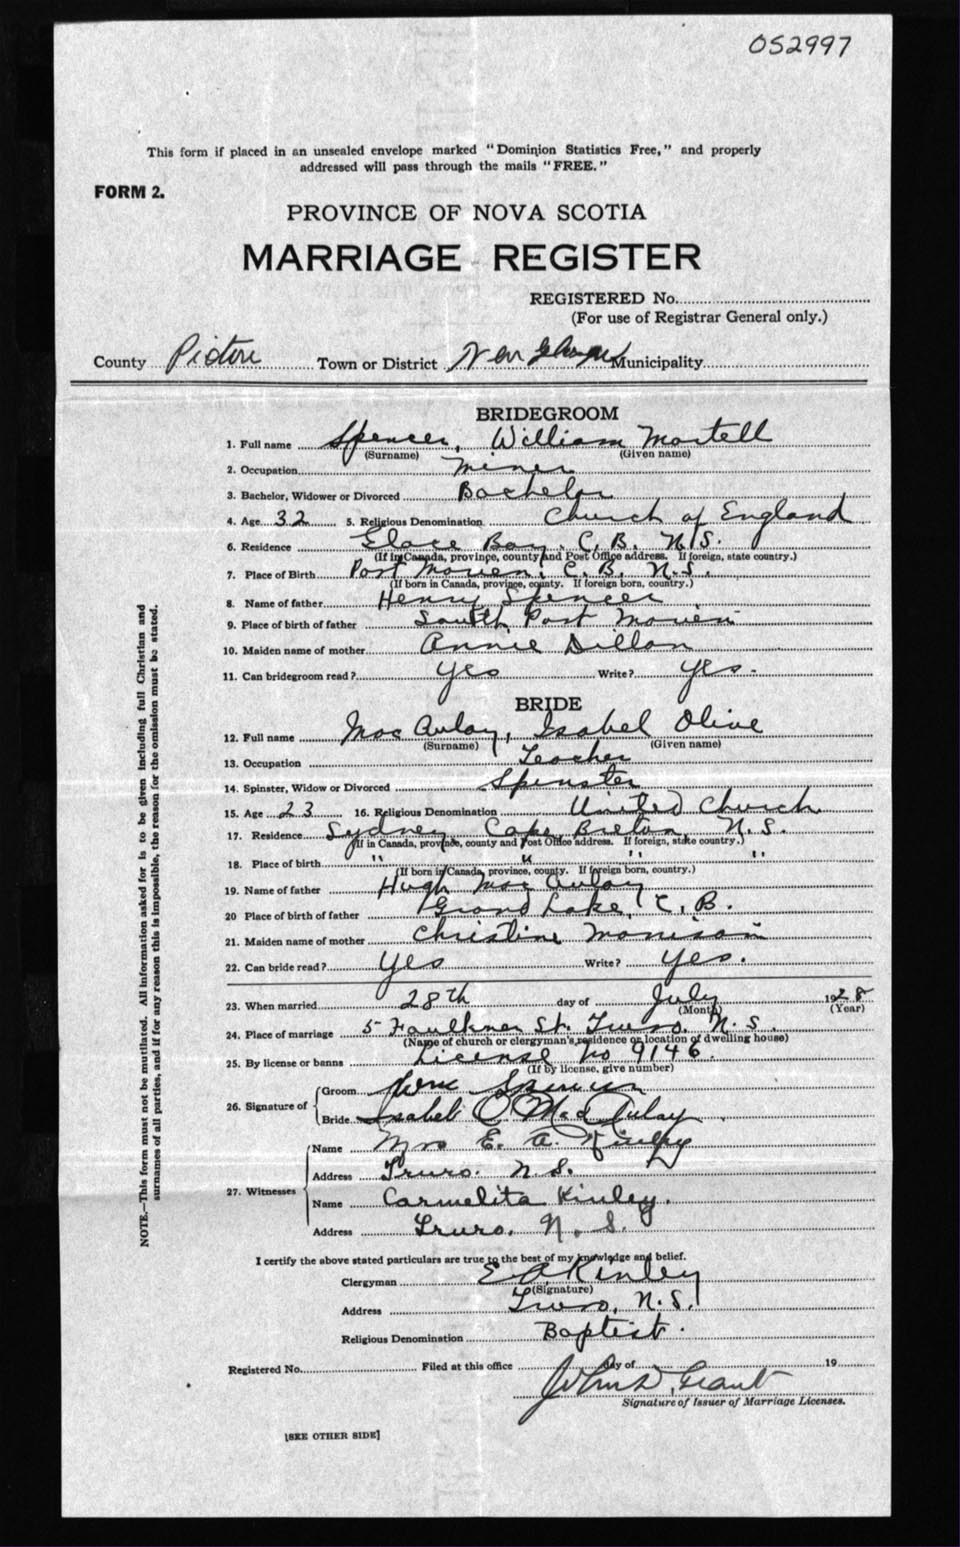 052997
This form if placed in an unsealed envelope marked "Dominion Statistics Free," and properly
addressed will pass through the mails "FREE."
FORM 2.
PROVINCE OF NOVA SCOTIA
MARRIAGE REGISTER
REGISTERED No.
(For use of Registrar General only.)
County Pictou Town or District New Glasgow Municipality
BRIDEGROOM
1. Full name Spencer, William Martell
(Surname) (Given name)
2. Occupation Miner
3. Bachelor, Widower or Divorced Bachelor
4. Age 32 5. Religious Denomination Church of England
6. Residence Glace Bay, C. B. N.S.
(If in Canada, province, county and Post Office address. If foreign, state country.)
7. Place of Birth Port Morien, C. B. N.S.
(If born in Canada, province, county. If foreign born, country.)
8. Name of father Henry Spencer
9. Place of birth of father South Port Morien
10. Maiden name of mother Annie Dillon
11. Can bridegroom read? Yes Write? Yes.
BRIDE
12. Full name MacAulay, Isabel Olive
(Surname) (Given name)
13. Occupation Teacher
14. Spinster, Widow or Divorced Spinster
15. Age 23 16. Religious Denomination United Church
17. Residence Sydney, Cape Breton, N.S.
(If in Canada, province, county and Post Office address. If foreign, state country.)
18. Place of birth " " " " "
(If born in Canada, province, county. If foreign born, country.)
19. Name of father Hugh MacAulay
20 Place of birth of father Grand Lake, C. B.
21. Maiden name of mother Christine Morrison
22. Can bride read? Yes Write? Yes.
23. When married 28th day of July 1928
(Month) (Year)
24. Place of marriage 5 Faulkner St. Truro. N.S.
(Name of church or clergyman's residence or location of dwelling house)
25. By license or banns License No 9146.
(If by license, give number)
26. Signature of Groom Wm Spencer
Bride Isabel O. MacAulay
27. Witnesses Name Mrs E. A. Kinley
Address Truro. N.S.
Name Carmelita Kinley.
Address Truro. N. S.
I certify the above stated particulars are true to the best of my knowledge and belief.
Clergyman E A Kinley
(Signature)
Address Truro, N.S.
Religious Denomination Baptist.
Registered No. Filed at this office day of 19
John D. Grant
Signature of Issuer of Marriage Licenses.
[SEE OTHER SIDE]
NOTE.—This form must not be mutilated. All information asked for is to be given including full Christian and
surnames of all parties, and if for any reason this is impossible, the reason for the omission must be stated.